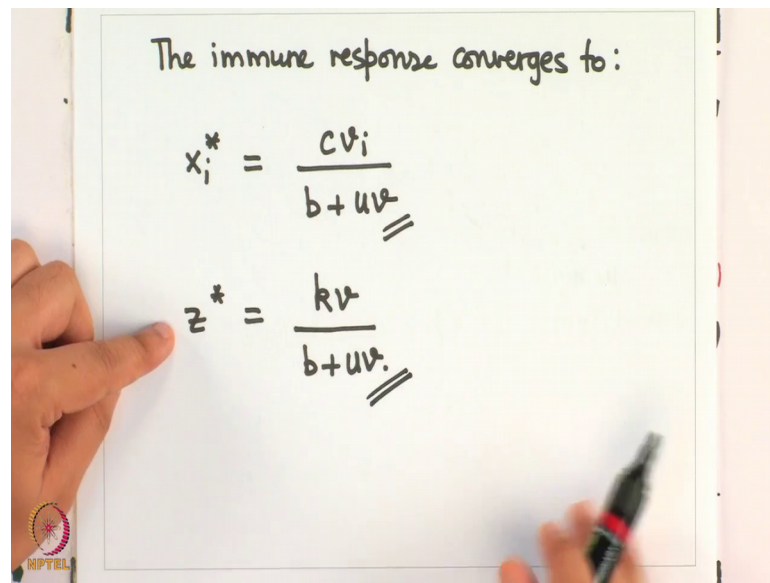 The immune response converges to:
x_i^* = cv_i / (b + uv)
z^* = kv / (b + uv.)
NPTEL